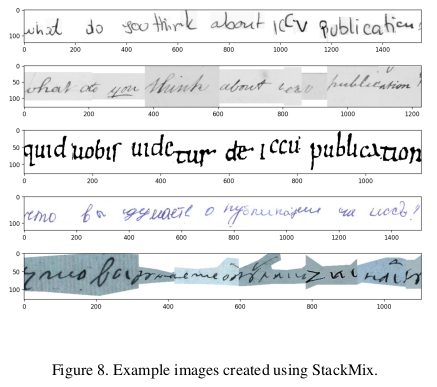 0
50
what do you think about ICCV publication
0 200 400 600 800 1000 1200 1400
0
50
100
what do you think about publication
0 200 400 600 800 1000 1200
0
50
100
quid uobis uidetur de iccui publication
0 200 400 600 800 1000
0
50
что вы думаете о публикации на
0 200 400 600 800 1000 1200 1400
0
50
100
0 200 400 600 800 1000
Figure 8. Example images created using StackMix.